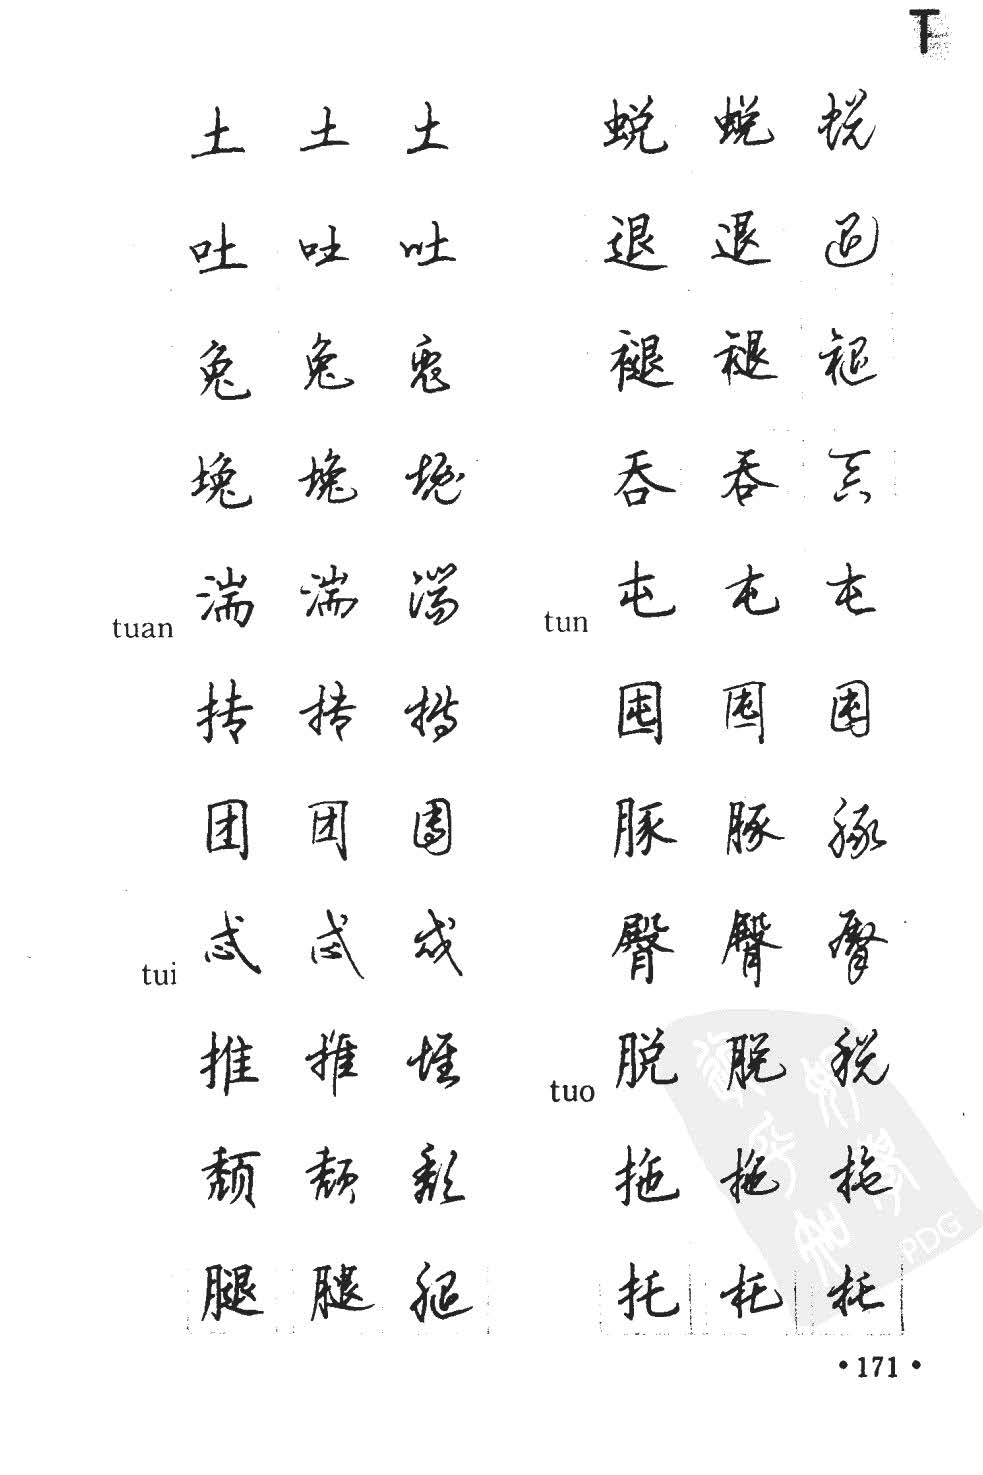 T
土 土 土
吐 吐 吐
兔 兔 兔
堍 堍 堍
tuan 湍 湍 湍
抟 抟 抟
团 团 团
tui 忒 忒 忒
推 推 推
颓 颓 颓
腿 腿 腿
蜕 蜕 蜕
退 退 退
褪 褪 褪
吞 吞 吞
tun 屯 屯 屯
囤 囤 囤
豚 豚 豚
臀 臀 臀
tuo 脱 脱 脱
拖 拖 拖
托 托 托
PDG
• 171 •